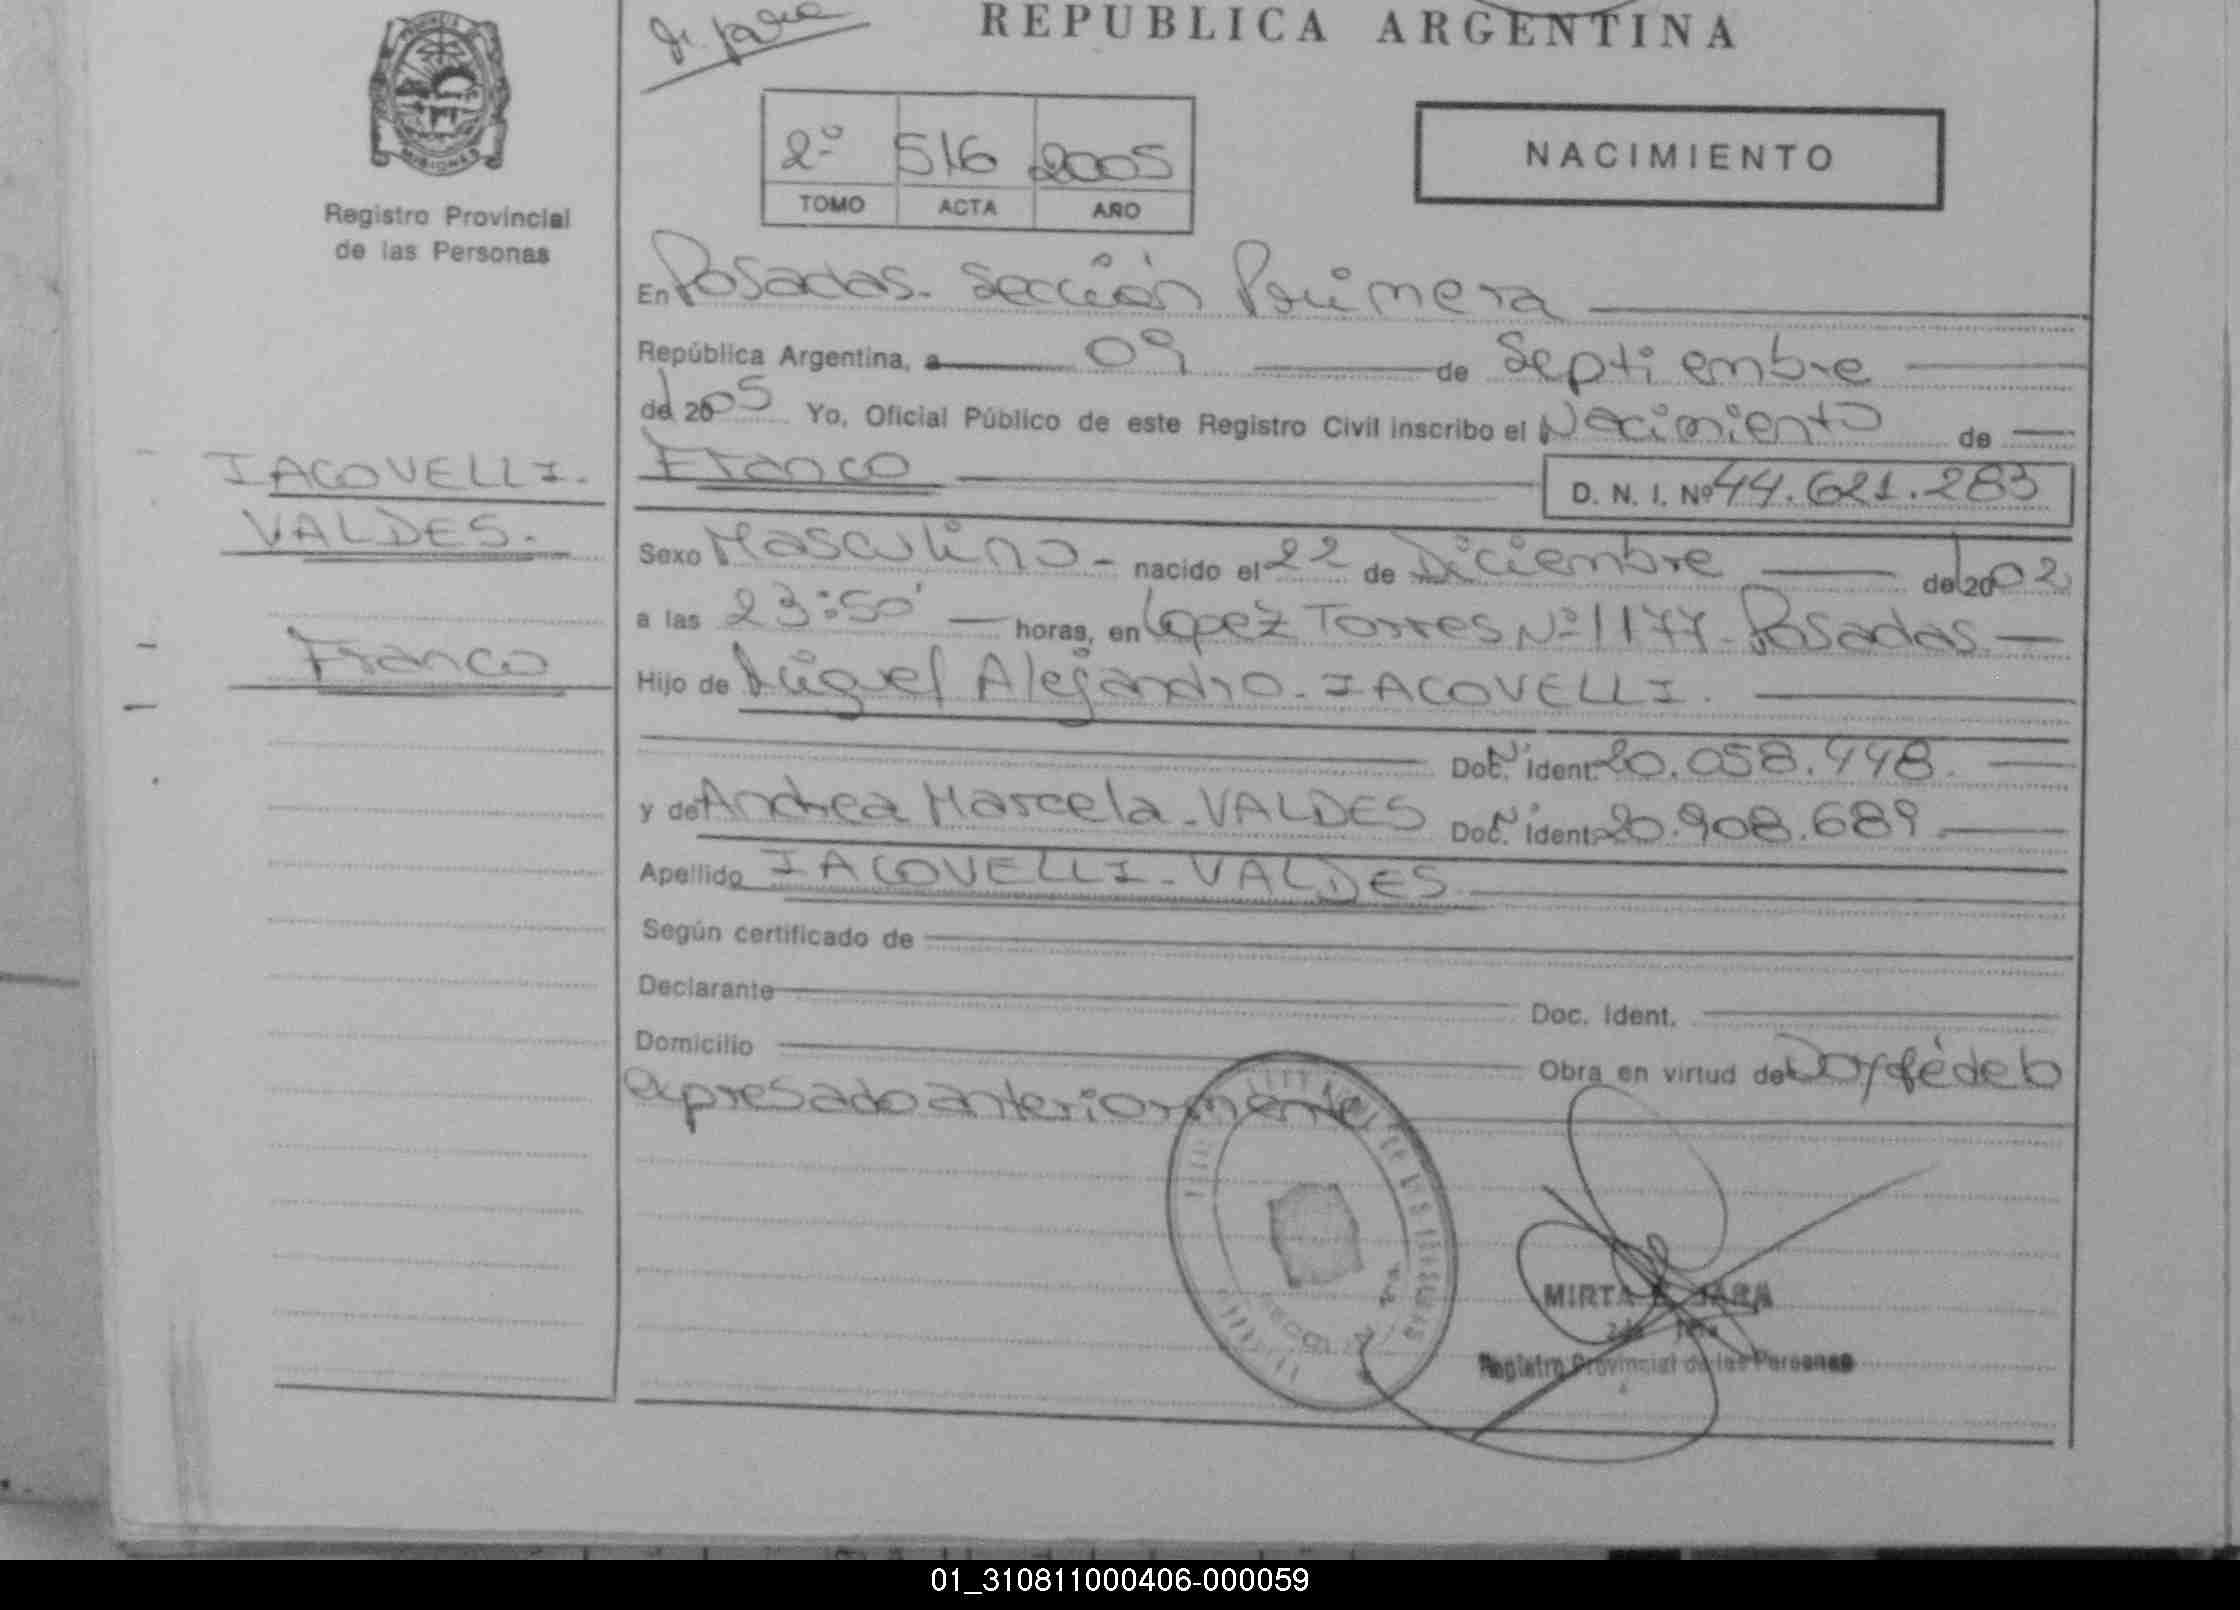 de Jara
REPUBLICA ARGENTINA
PROVINCIA
MISIONES
Registro Provincial
de las Personas
2º 516 2005
TOMO ACTA AÑO
NACIMIENTO
En Posadas. Sección Primera
República Argentina, a 09 de Septiembre
del 2005 Yo, Oficial Público de este Registro Civil inscribo el Nacimiento de
Franco D. N. I. Nº 44.621.283
IACOVELLI.
VALDES.
Franco
Sexo Masculino - nacido el 22 de Diciembre del 2002
a las 23:50' horas, en Lopez Torres Nº 1177 - Posadas
Hijo de Miguel Alejandro - IACOVELLI.
Doc. Ident. 20.058.448
y de Andrea Marcela - VALDES Doc. Ident. 20.908.689
Apellido IACOVELLI - VALDES
Según certificado de
Declarante
Doc. Ident.
Domicilio
Obra en virtud de Doy fé de lo
expresado anteriormente
MIRTA JARA
Registro Provincial de las Personas
01_310811000406-000059